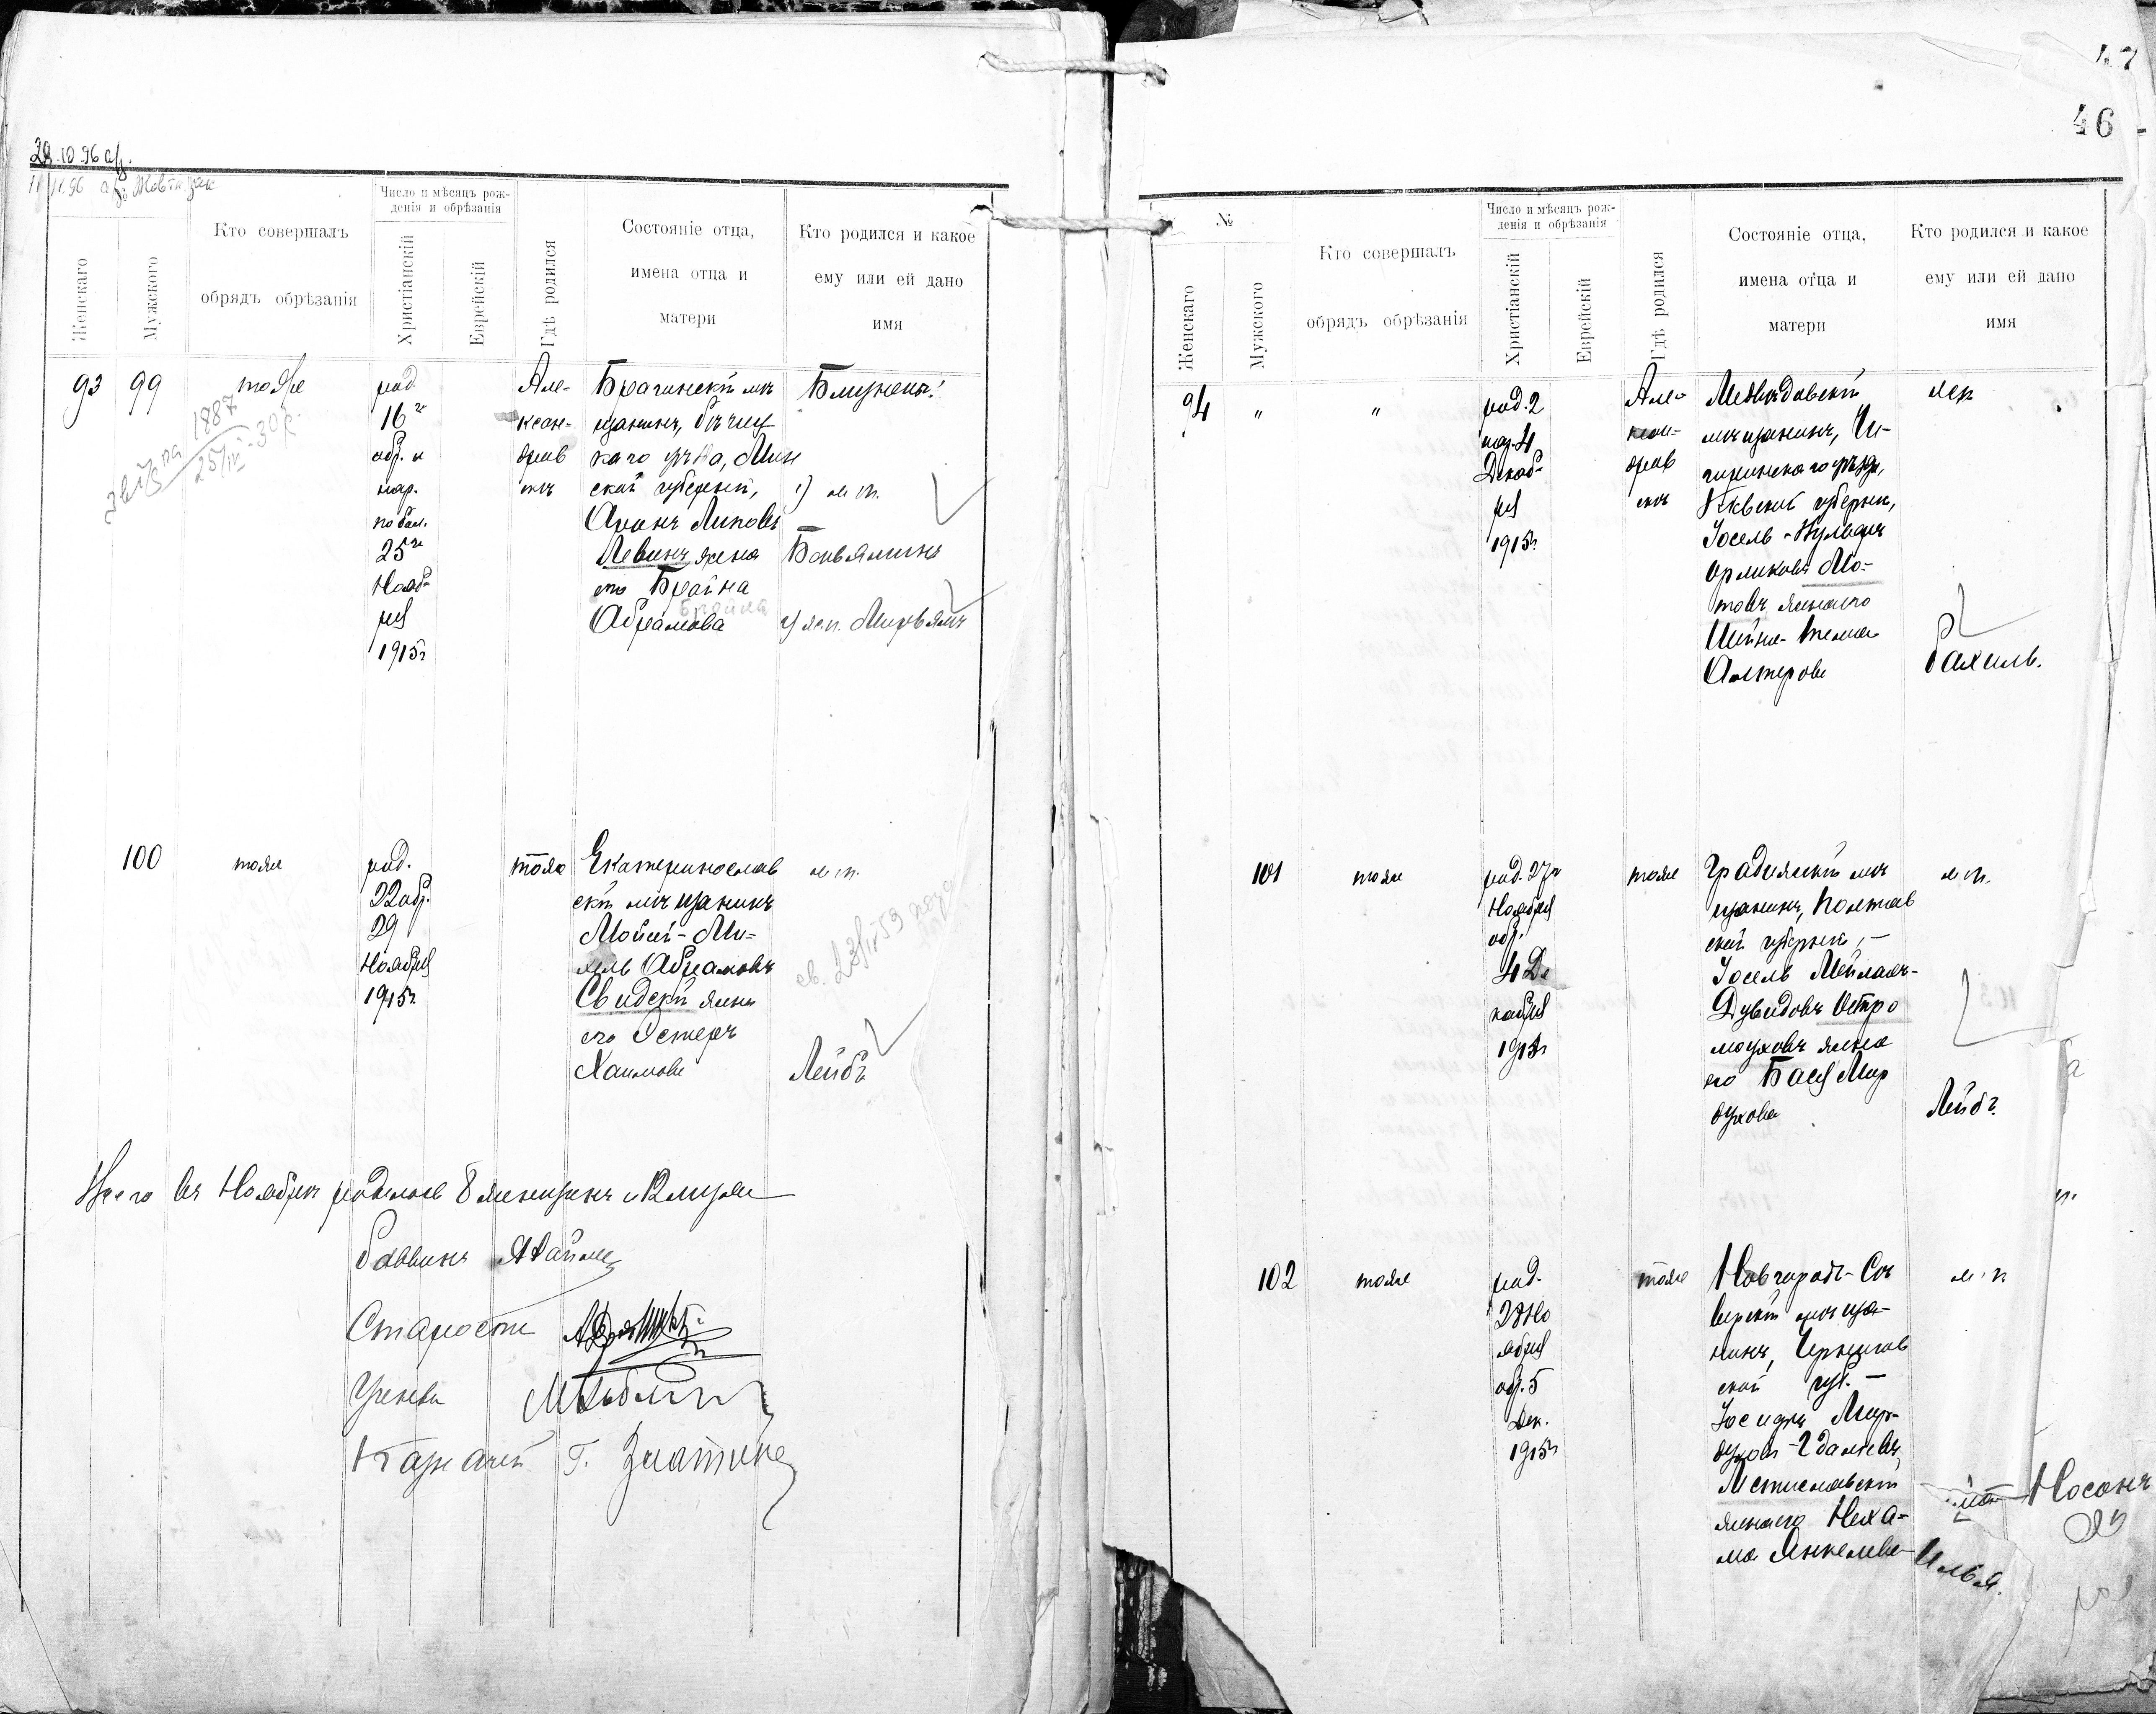 29.10.96
Число и мѣсяцъ рож-
денія и обрѣзанія
Женскаго
Мужского
Кто совершалъ
обрядъ обрѣзанія
Христіанскій
Еврейскій
Гдѣ родился
Состояніе отца,
имена отца и
матери
Кто родился и какое
ему или ей дано
имя
93
99
тоже
1887
род.
16го
обр. и
нар.
25го
Нояб-
ря
1915г
Але-
ксан-
дров
скъ
Брагинскій мѣ
щанинъ, Рѣчиц
каго уѣзда, Мин
ской губерніи,
Аронъ Липовъ
Левинъ жена
его Брайна
Брайна
Абрамова
Близнецы:
1) м. п.
Беньяминъ
2) ж.п. Мирьямъ
100
тоже
род.
22 обр.
29
Ноября
1915г.
тоже
Екатеринослав
скій мѣщанинъ
Мойсей-Ми-
хель Абрамовъ
Свидскій жена
его Эстеръ
Хаимова
м п.
Лейбъ
Всего въ Ноябрѣ родилось 8 женщинъ и 12 мужч
Раввинъ
Староста
Ученый
Казначей Г. Златкинъ
47
46
№
Женскаго
Мужского
Кто совершалъ
обрядъ обрѣзанія
Число и мѣсяцъ рож-
денія и обрѣзанія
Христіанскій
Еврейскій
Гдѣ родился
Состояніе отца,
имена отца и
матери
Кто родился и какое
ему или ей дано
имя
94
"
"
род. 2
нар. 4
Декаб-
ря
1915г.
Але-
ксан-
дров
скъ
Медвѣдовскій
мѣщанинъ, Чи-
гиринскаго уѣзда,
Кіевской губерніи,
Іосель-
жена его
Шейна-
Алтерова
жп
Рахиль.
101
тоже
род. 27го
Ноября
обр.
4 Де
кабря
1915г
тоже
Градижскій мѣ
щанинъ, Полтав
ской губерніи, —
Іосель Мейлахъ-
Дувидовъ Остро
моуховъ жена
его Бася Мор
духова
м п.
Лейбъ.
102
тоже
род.
28 Но
ября
обр. 5
Дек.
1915г
тоже
Новгородъ-Сѣ
верскій мѣща-
нинъ, Чернигов
ской губ. —
Мор-
духъ-Гдальевъ
Мстиславскій
жена его Неха-
ма Янкелева
м. п
Носонъ
Илья.